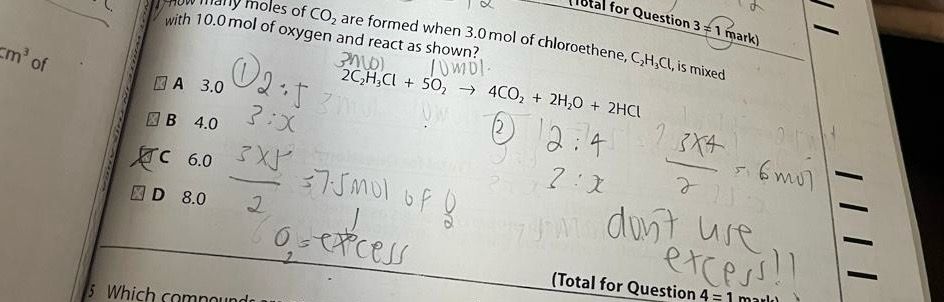 (Total for Question 3 = 1 mark)
many moles of CO₂ are formed when 3.0 mol of chloroethene, C₂H₃Cl, is mixed
with 10.0 mol of oxygen and react as shown?
cm³ of
3mol 10mol.
2C₂H₃Cl + 5O₂ → 4CO₂ + 2H₂O + 2HCl
A 3.0
B 4.0
C 6.0
D 8.0
① 2:5
3:x
3x5
2
=7.5mol of O₂
O₂ = excess
② 2:4
3:x
3x4
2
= 6mol
don't use
excess!!
(Total for Question 4 = 1 mark)
5 Which